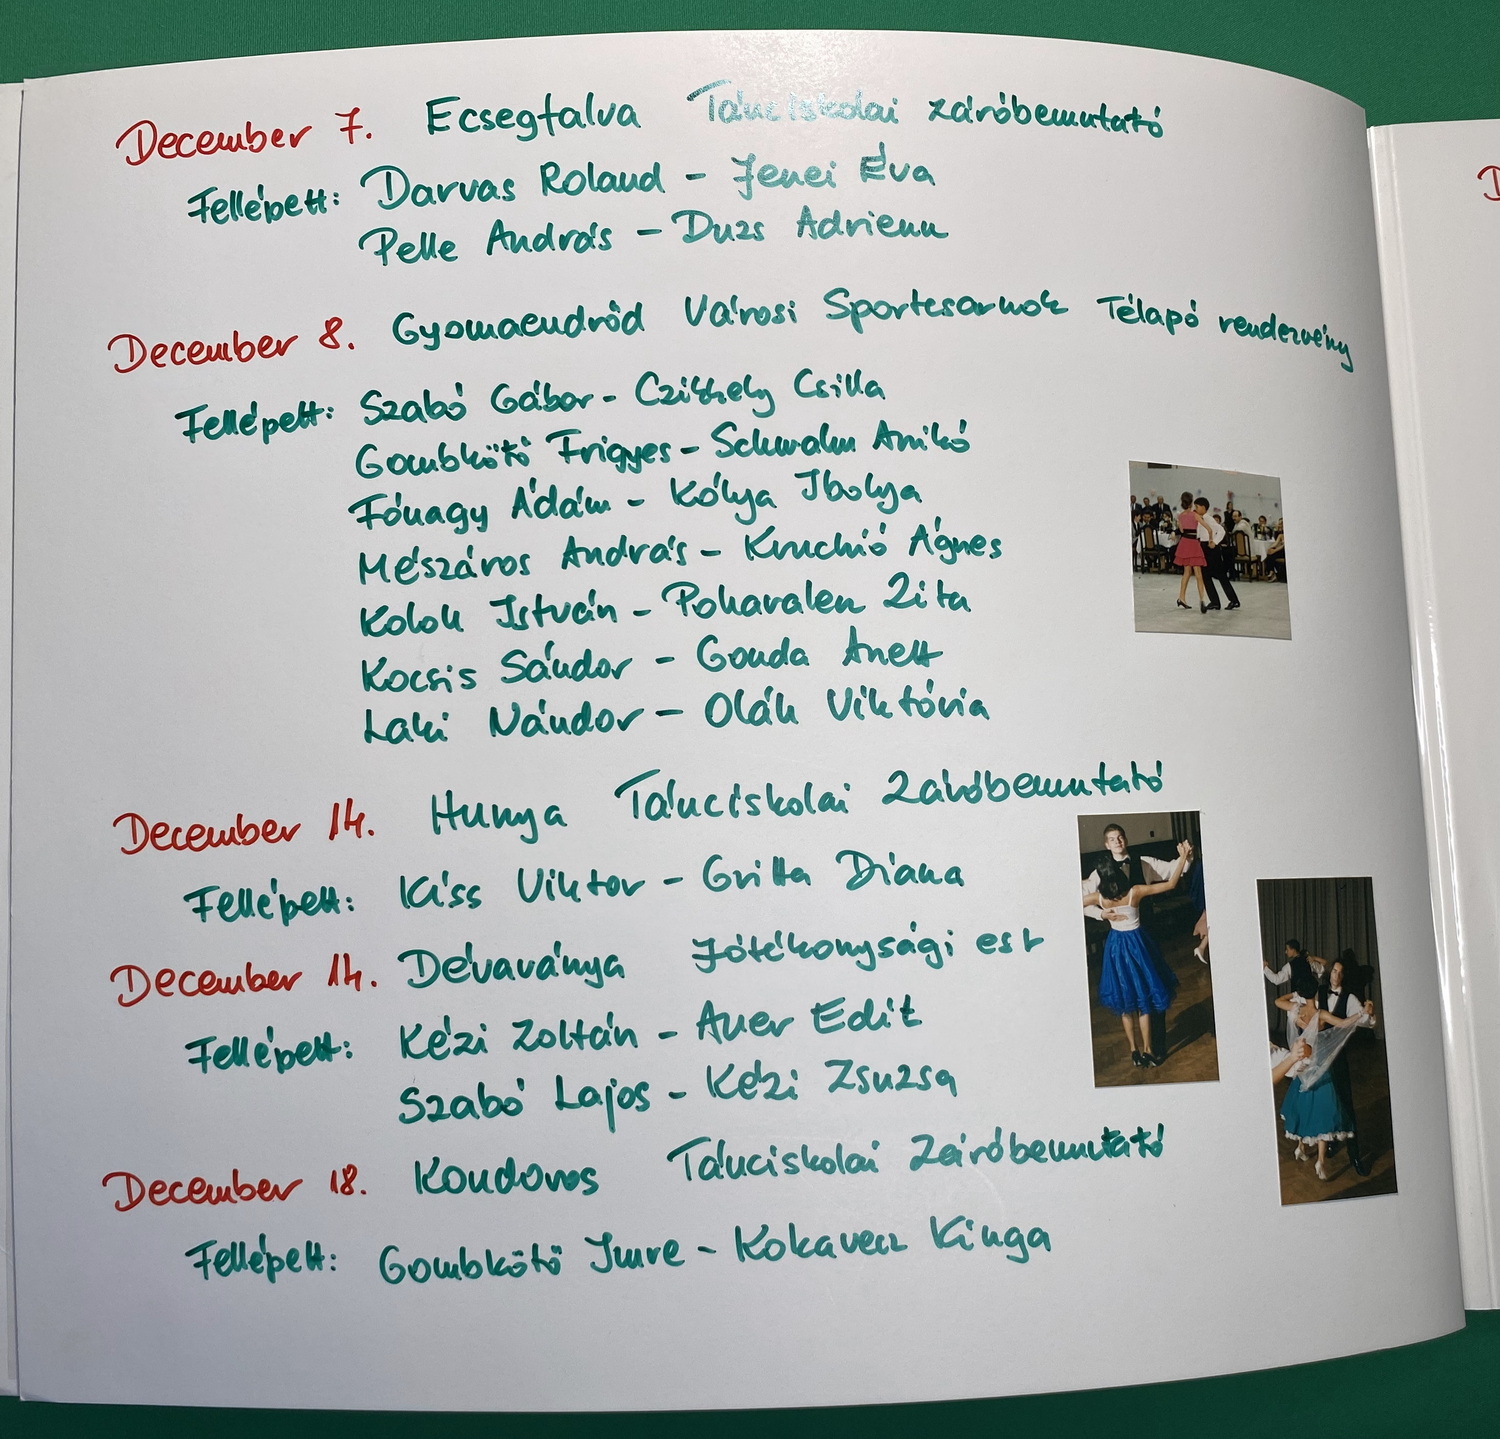 December 7. Ecsegfalva Tánciskolai záróbemutató
Fellépett: Darvas Roland - Jenei Éva
Pelle András - Duzs Adrienn
December 8. Gyomaendrőd Városi Sportcsarnok Télapó rendezvény
Fellépett: Szabó Gábor - Czikhely Csilla
Gombkötő Frigyes - Schwalm Anikó
Fónagy Ádám - Kólya Ibolya
Mészáros András - Kruchió Ágnes
Kolok István - Pokavalen Zita
Kocsis Sándor - Gonda Anett
Laki Nándor - Oláh Viktória
December 14. Hunya Tánciskolai Záróbemutató
Fellépett: Kiss Viktor - Gritta Diana
December 14. Dévaványa Jótékonysági est
Fellépett: Kézi Zoltán - Auer Edit
Szabó Lajos - Kézi Zsuzsa
December 18. Kondoros Tánciskolai Záróbemutató
Fellépett: Gombkötő Imre - Kokavecz Kinga